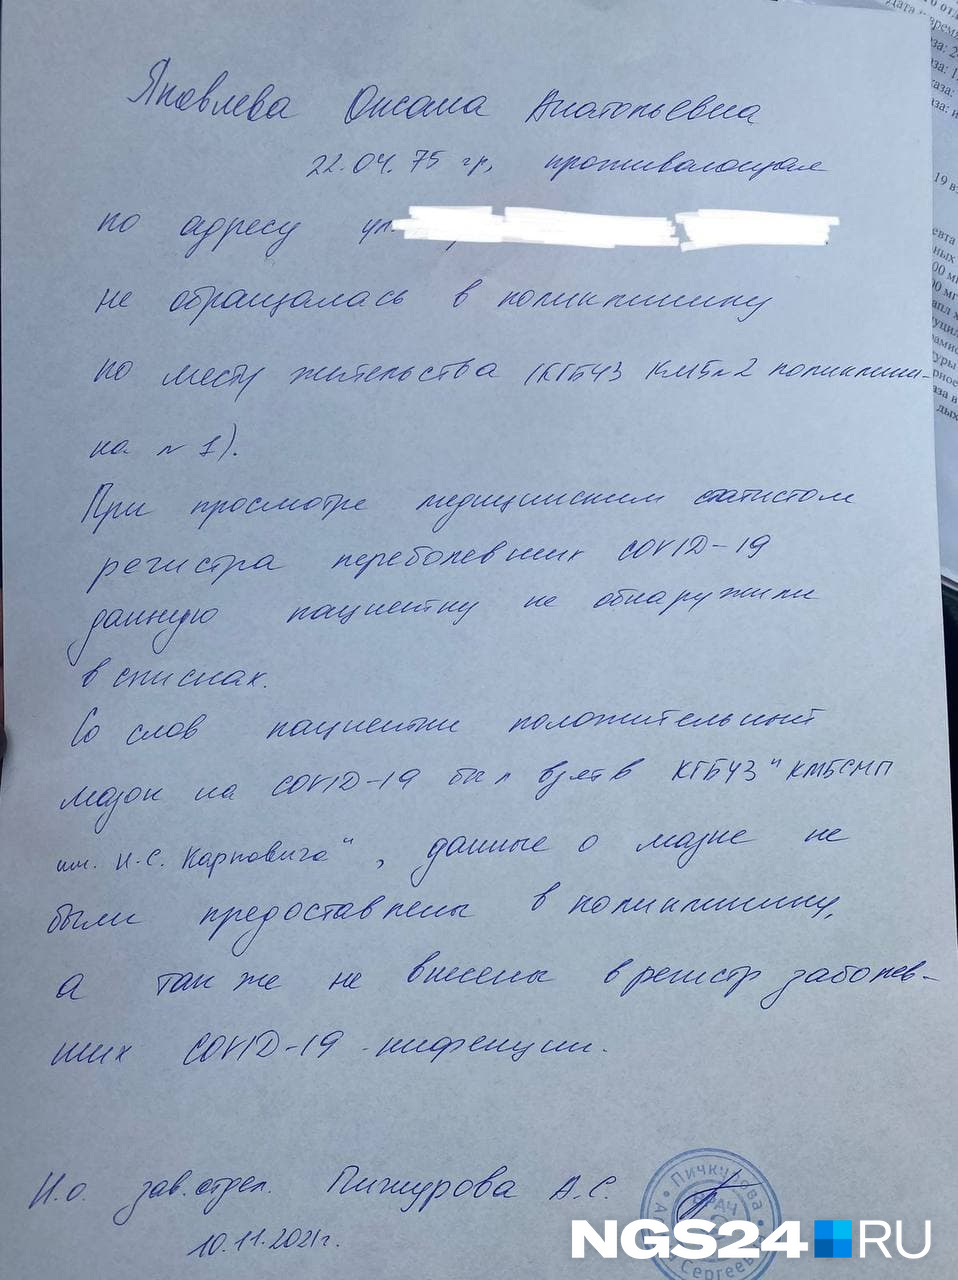 Яковлева Оксана Анатольевна
22.04.75 гр, проживающая
по адресу ул.
не обращалась в поликлинику
по месту жительства (КГБУЗ КМБ№2 поликлини-
ка № 1).
При просмотре медицинским статистом
регистра переболевших COVID-19
данную пациентку не обнаружили
в списках.
Со слов пациентки положительный
мазок на COVID-19 был взят в КГБУЗ "КМБСМП
им. Н.С. Карповича", данные о мазке не
были предоставлены в поликлинику,
а так же не внесены в регистр заболев-
ших COVID-19 инфекции.
И.о. зав.отдел. Пичкурова А.С.
10.11.2021г.
Пичкурова
ВРАЧ
Сергеев
NGS24.RU
19